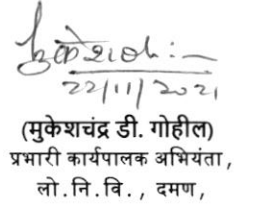 मुकेशचंद्र :—
22/11/2021
(मुकेशचंद्र डी. गोहील)
प्रभारी कार्यपालक अभियंता,
लो.नि.वि., दमण,